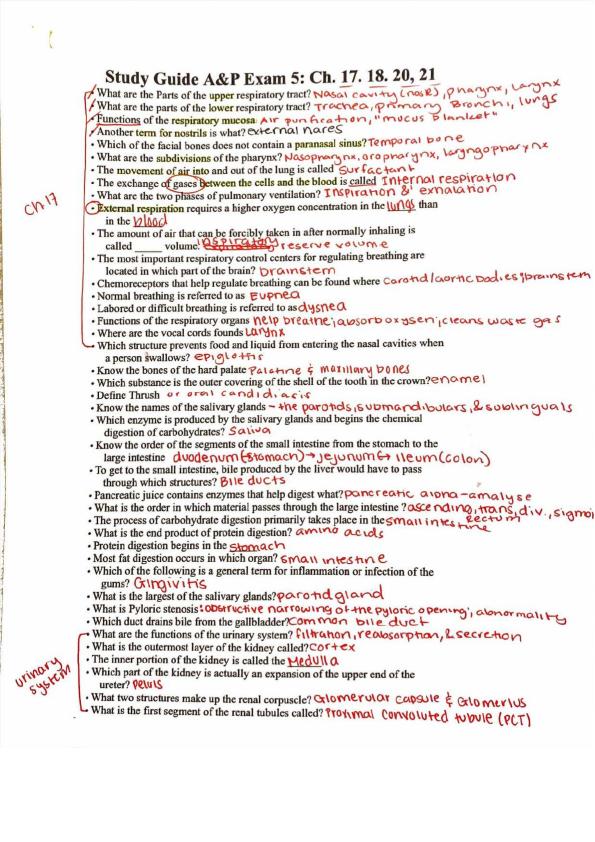 Study Guide A&P Exam 5: Ch. 17. 18. 20, 21
• What are the Parts of the upper respiratory tract? Nasal cavity (nose), pharynx, Larynx
• What are the parts of the lower respiratory tract? Trachea, primary Bronchi, lungs
• Functions of the respiratory mucosa: Air purification, "mucus blanket"
• Another term for nostrils is what? external nares
• Which of the facial bones does not contain a paranasal sinus? Temporal bone
• What are the subdivisions of the pharynx? Nasopharynx, oropharynx, laryngopharynx
• The movement of air into and out of the lung is called Surfactant
• The exchange of gases between the cells and the blood is called Internal respiration
• What are the two phases of pulmonary ventilation? Inspiration & exhalation
Ch 17
• External respiration requires a higher oxygen concentration in the lungs than
in the blood
• The amount of air that can be forcibly taken in after normally inhaling is
called _____ volume. inspiratory reserve volume
• The most important respiratory control centers for regulating breathing are
located in which part of the brain? brainstem
• Chemoreceptors that help regulate breathing can be found where carotid/aortic bodies; brainstem
• Normal breathing is referred to as Eupnea
• Labored or difficult breathing is referred to as dysnea
• Functions of the respiratory organs help breathe; absorb oxygen; cleans waste gas
• Where are the vocal cords founds Larynx
• Which structure prevents food and liquid from entering the nasal cavities when
a person swallows? epiglottis
• Know the bones of the hard palate Palatine & maxillary bones
• Which substance is the outer covering of the shell of the tooth in the crown? enamel
• Define Thrush or oral candidiasis
• Know the names of the salivary glands – the parotids, submandibulars, & sublinguals
• Which enzyme is produced by the salivary glands and begins the chemical
digestion of carbohydrates? Saliva
• Know the order of the segments of the small intestine from the stomach to the
large intestine duodenum (stomach) → jejunum → Ileum (colon)
• To get to the small intestine, bile produced by the liver would have to pass
through which structures? Bile ducts
• Pancreatic juice contains enzymes that help digest what? pancreatic alpha-amalyse
• What is the order in which material passes through the large intestine? ascending, trans, div., sigmoi
rectum
• The process of carbohydrate digestion primarily takes place in the small intestine
• What is the end product of protein digestion? amino acids
• Protein digestion begins in the stomach
• Most fat digestion occurs in which organ? small intestine
• Which of the following is a general term for inflammation or infection of the
gums? Gingivitis
• What is the largest of the salivary glands? parotid gland
• What is Pyloric stenosis: obstructive narrowing of the pyloric opening; abnormality
• Which duct drains bile from the gallbladder? Common bile duct
• What are the functions of the urinary system? filtration, reabsorption, & secretion
• What is the outermost layer of the kidney called? cortex
• The inner portion of the kidney is called the Medulla
urinary system
• Which part of the kidney is actually an expansion of the upper end of the
ureter? Pelvis
• What two structures make up the renal corpuscle? Glomerular capsule & Glomerlus
• What is the first segment of the renal tubules called? Proximal convoluted tubule (PCT)